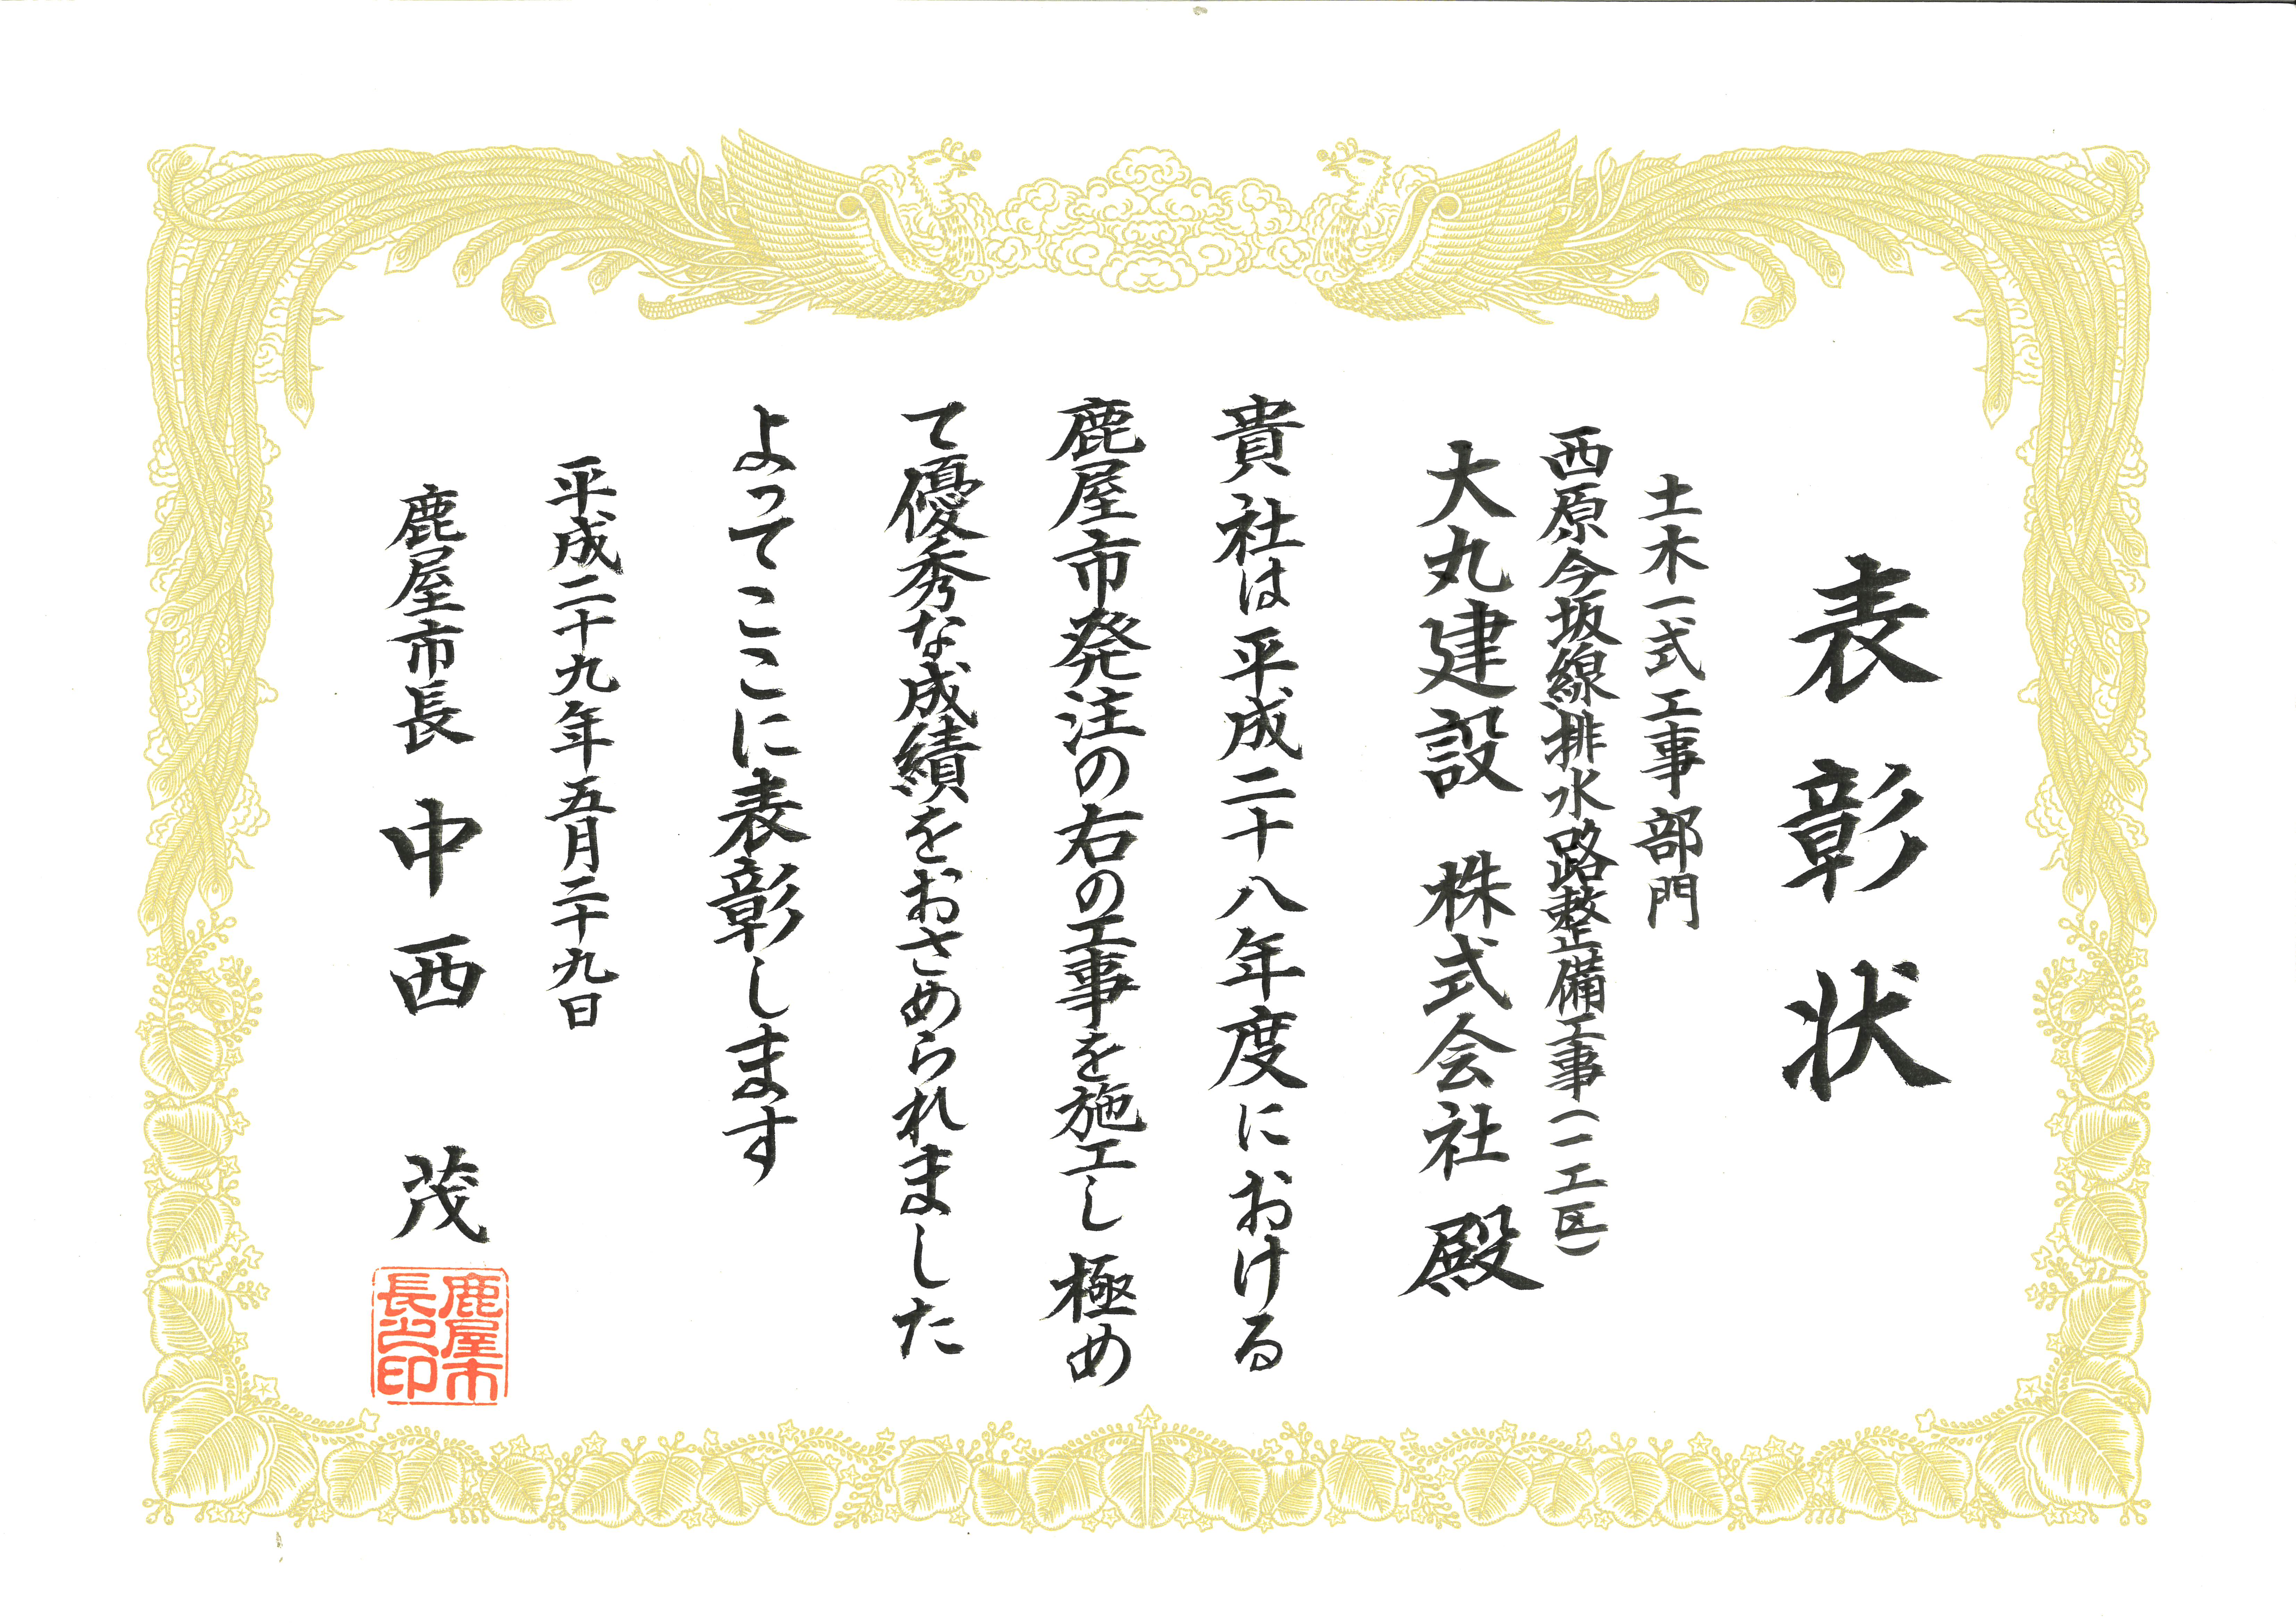 表彰状
土木一式工事部門
西原今坂線排水路整備工事(一工区)
大丸建設 株式会社 殿
貴社は平成二十八年度における
鹿屋市発注の右の工事を施工し極め
て優秀な成績をおさめられました
よってここに表彰します
平成二十九年五月二十九日
鹿屋市長 中西 茂
鹿屋市
長之印